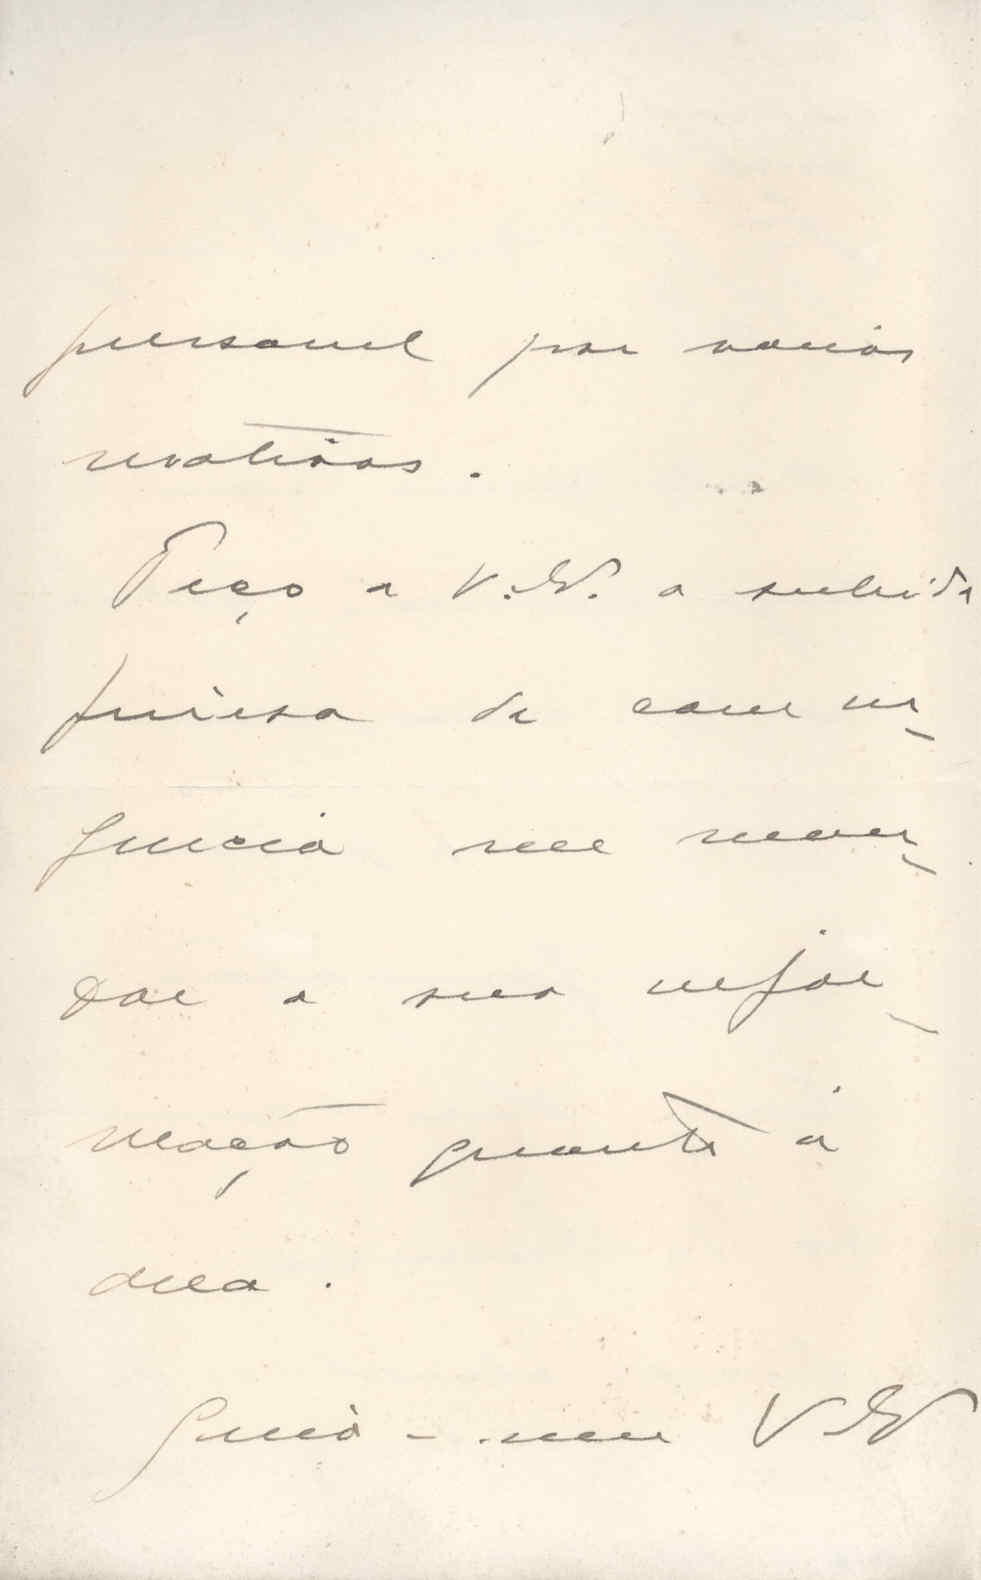 personnel por varios
motivos.
Peço a V. Ex. a subida
fineza de com ur-
gencia me man-
dar a sua infor-
mação quanto á
dita.
Queira-me V Ex